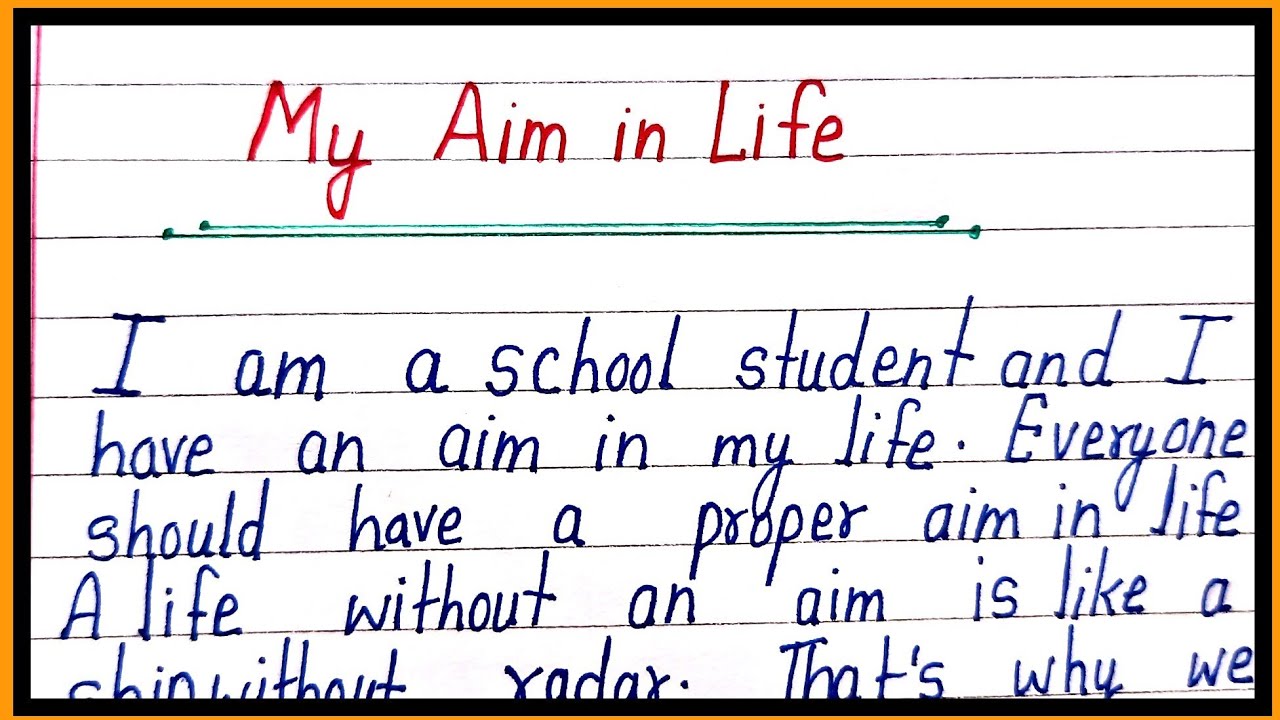 My Aim in Life
I am a school student and I
have an aim in my life. Everyone
should have a proper aim in life
A life without an aim is like a
ship without radar. That's why we